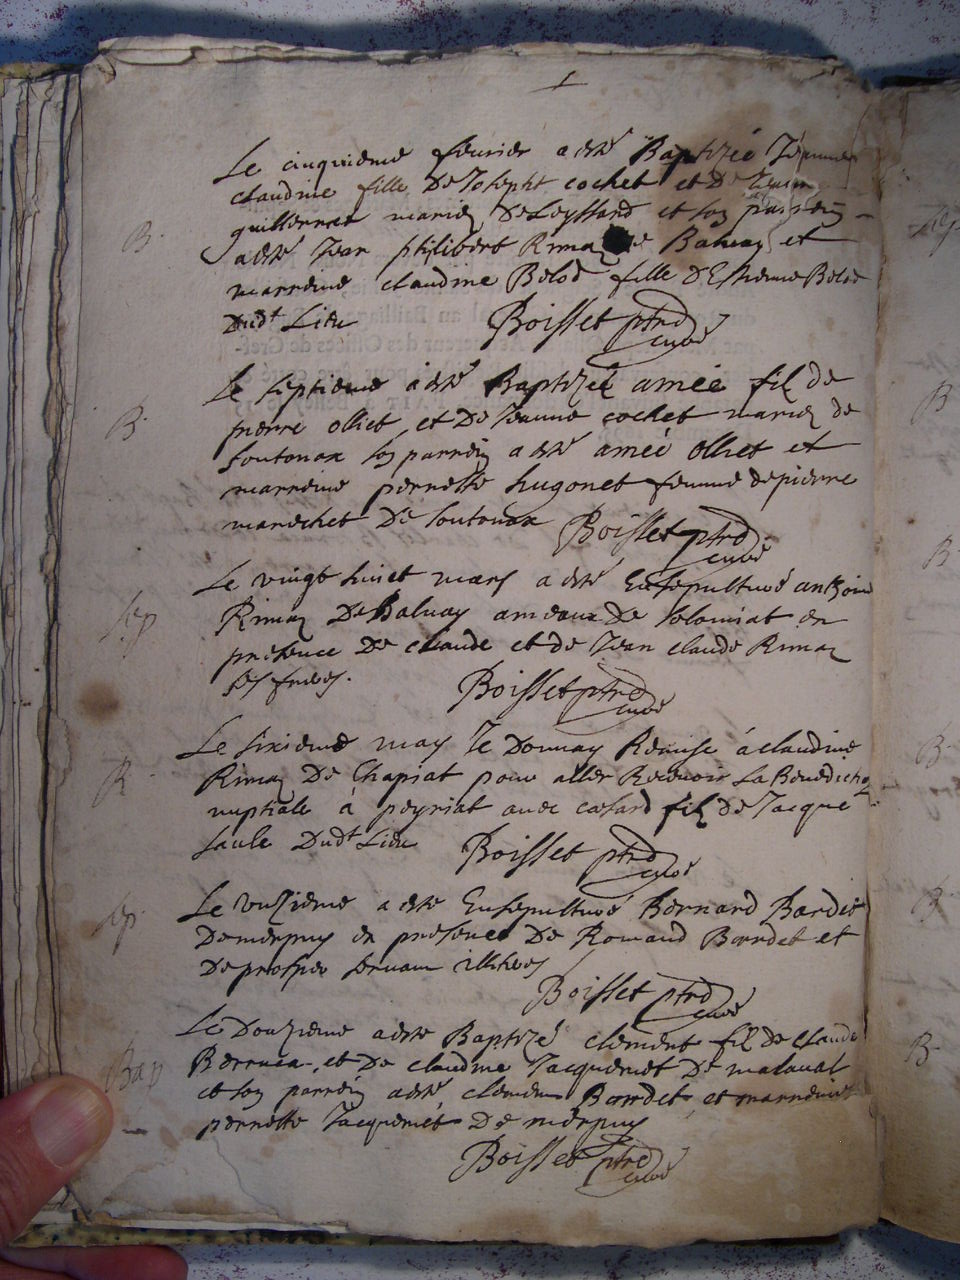 Le cinquieme feurier a esté Baptizée Jeanne
B.
claudine fille De Joseph cochet et De
guillermet mariez De Leyssard et son parrein
a esté Jean philibert Rimaz De Baluay et
marreine claudine Belod fille D'Estienne Belod
Dudt Lieu Boisset ptre curé
Le septieme a esté Baptizé amée fil de
B.
pierre olliet et De Jeanne cochet mariez de
soutonax son parrein a esté amée olliet et
marreine pernette hugonet femme de pierre
marechet De soutonax Boisset ptre curé
Le vingt huict mars a esté Ensepulturé anthoine
sep
Rimaz De Baluay ameaux De solomiat en
presence De claude et de Jean claude Rimaz
ses freres. Boisset ptre curé
Le sixieme may Je Donnay Remise à claudine
R.
Rimaz De Chapiat pour aller Receuoir La Benediction
nuptiale à peyriat auec cesard fil De Jacque
saule Dudt Lieu Boisset ptre curé
Le unzieme a esté Ensepulturé Bernard Bardet
sep.
De merpuy en presence De Romand Bardet et
De prosper seruan illitérés
Boisset ptre curé
Le Douzieme a esté Baptizé clement fil de claude
Bap
et De claudine Jacquemet De malaual
et son parrein a esté clement Bardet et marreine
pernette Jacquemet De merpuy
Boisset ptre curé
B
B
B
B
B